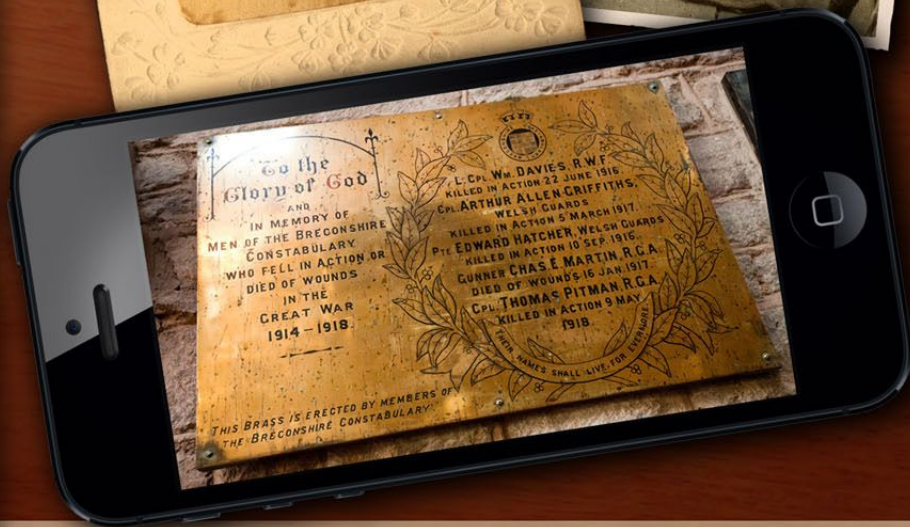 To the
Glory of God
AND
IN MEMORY OF
MEN OF THE BRECONSHIRE
CONSTABULARY
WHO FELL IN ACTION OR
DIED OF WOUNDS
IN THE
GREAT WAR
1914-1918.
L. CPL WM. DAVIES, R.W.F.
KILLED IN ACTION 22 JUNE 1916
CPL. ARTHUR ALLEN GRIFFITHS,
WELSH GUARDS
KILLED IN ACTION 5 MARCH 1917.
PTE EDWARD HATCHER, WELSH GUARDS
KILLED IN ACTION 10 SEP. 1916.
GUNNER CHAS. E. MARTIN, R.G.A.
DIED OF WOUNDS 16 JAN. 1917.
CPL. THOMAS PITMAN, R.G.A.
KILLED IN ACTION 9 MAY
1918.
THEIR NAMES SHALL LIVE FOR EVERMORE
THIS BRASS IS ERECTED BY MEMBERS OF
THE BRECONSHIRE CONSTABULARY